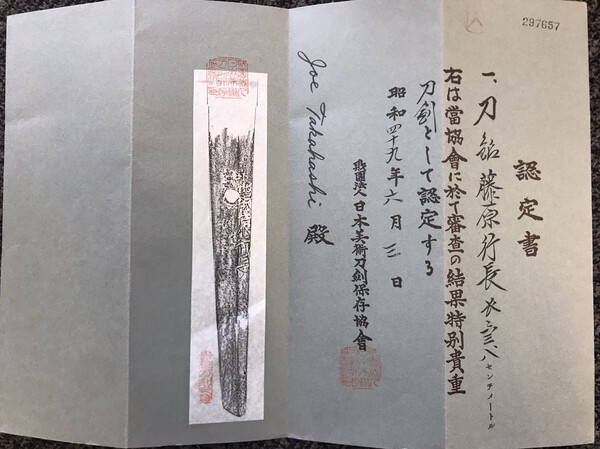 297657
認定書
一、刀 銘 藤原行長 センチメートル
右は當協會に於て審査の結果特別貴重
刀劍として認定する
昭和四十九年六月三日
財團法人日本美術刀劍保存協會
Joe Takahashi 殿